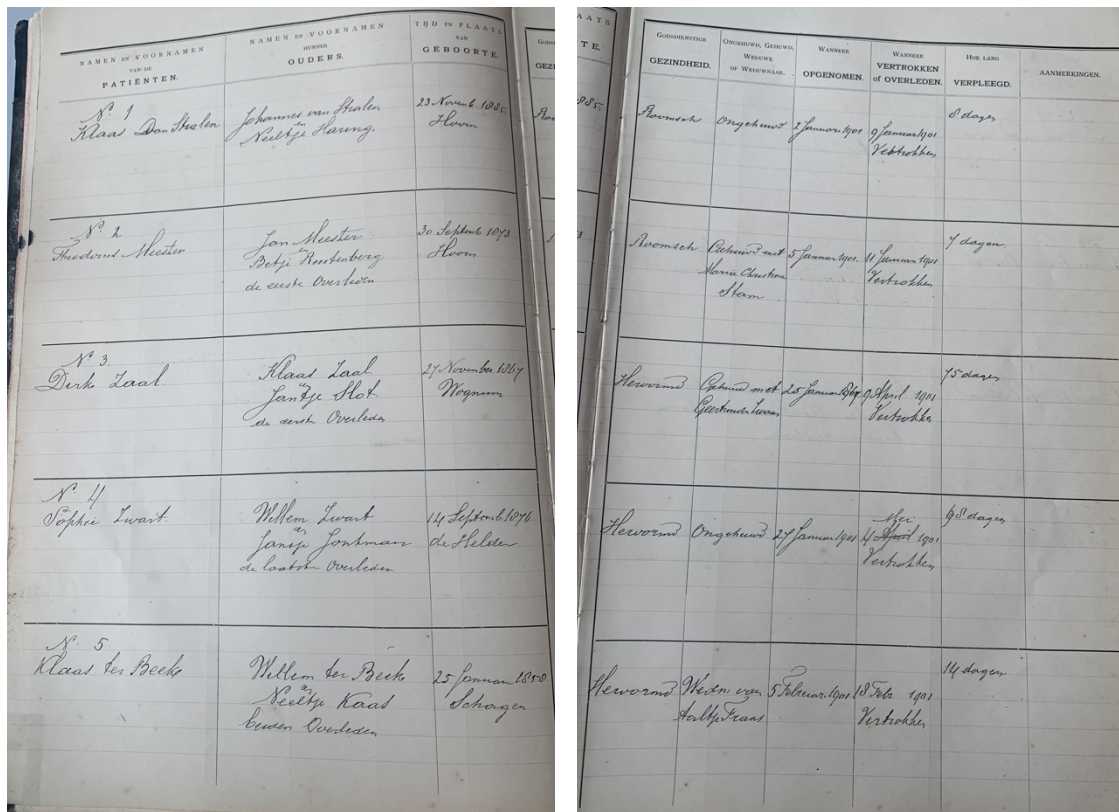 NAMEN EN VOORNAMEN
VAN DE
PATIËNTEN.
NAMEN EN VOORNAMEN
HUNNER
OUDERS.
TIJD EN PLAATS
VAN
GEBOORTE.
No. 1
Klaas van Stralen
Johannes van Stralen
en
Neeltje Haring.
23 Novemb. 1885.
Hoorn
No. 2
Theodorus Meester
Jan Meester
en
Betje Rustenberg
de eerste Overleden
30 Septemb 1873
Hoorn
No. 3.
Dirk Zaal
Klaas Zaal
en
Jantje Slot
de eerste Overleden
27 November 1867
Wognum
No. 4
Sophie Zwart.
Willem Zwart
en
Jansje Jontman
de laatste Overleden
14 Septemb. 1876
de Helder
No. 5
Klaas ter Beek
Willem ter Beek
en
Neeltje Kaas
beiden Overleden
25 Januari 1858
Schagen
AATS
TE.
GODSDIENSTIGE
GEZINDHEID.
ONGEHUWD, GEHUWD,
WEDUWE
OF WEDUWNAAR.
WANNEER
OPGENOMEN.
WANNEER
VERTROKKEN
of OVERLEDEN.
HOE LANG
VERPLEEGD.
AANMERKINGEN.
Roomsch
Ongehuwd
2 Januari 1901
9 Januari 1901
Vertrokken
8 dagen
Roomsch
Gehuwd met
Maria Christina
Stam
5 Januari 1901.
11 Januari 1901
Vertrokken
7 dagen.
Hervormd
Gehuwd met
Geertruida Zwaan
25 Januari
9 April 1901
Vertrokken
75 dagen
Hervormd
Ongehuwd
27 Januari 1901
Mei
4 April 1901
Vertrokken
98 dagen
Hervormd
Wedn. van
Aaltje Frans
5 Februari 1901
18 Febr 1901
Vertrokken
14 dagen